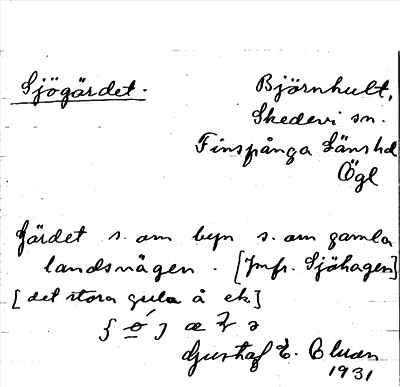 Sjögärdet.
Björnhult,
Skedevi sn.
Finspånga Länshd
Ögl
Gärdet s. om byn s. om gamla
landsvägen. [Jmfr. Sjöhagen]
[det stora gula å ek]
Gustaf E.
1931